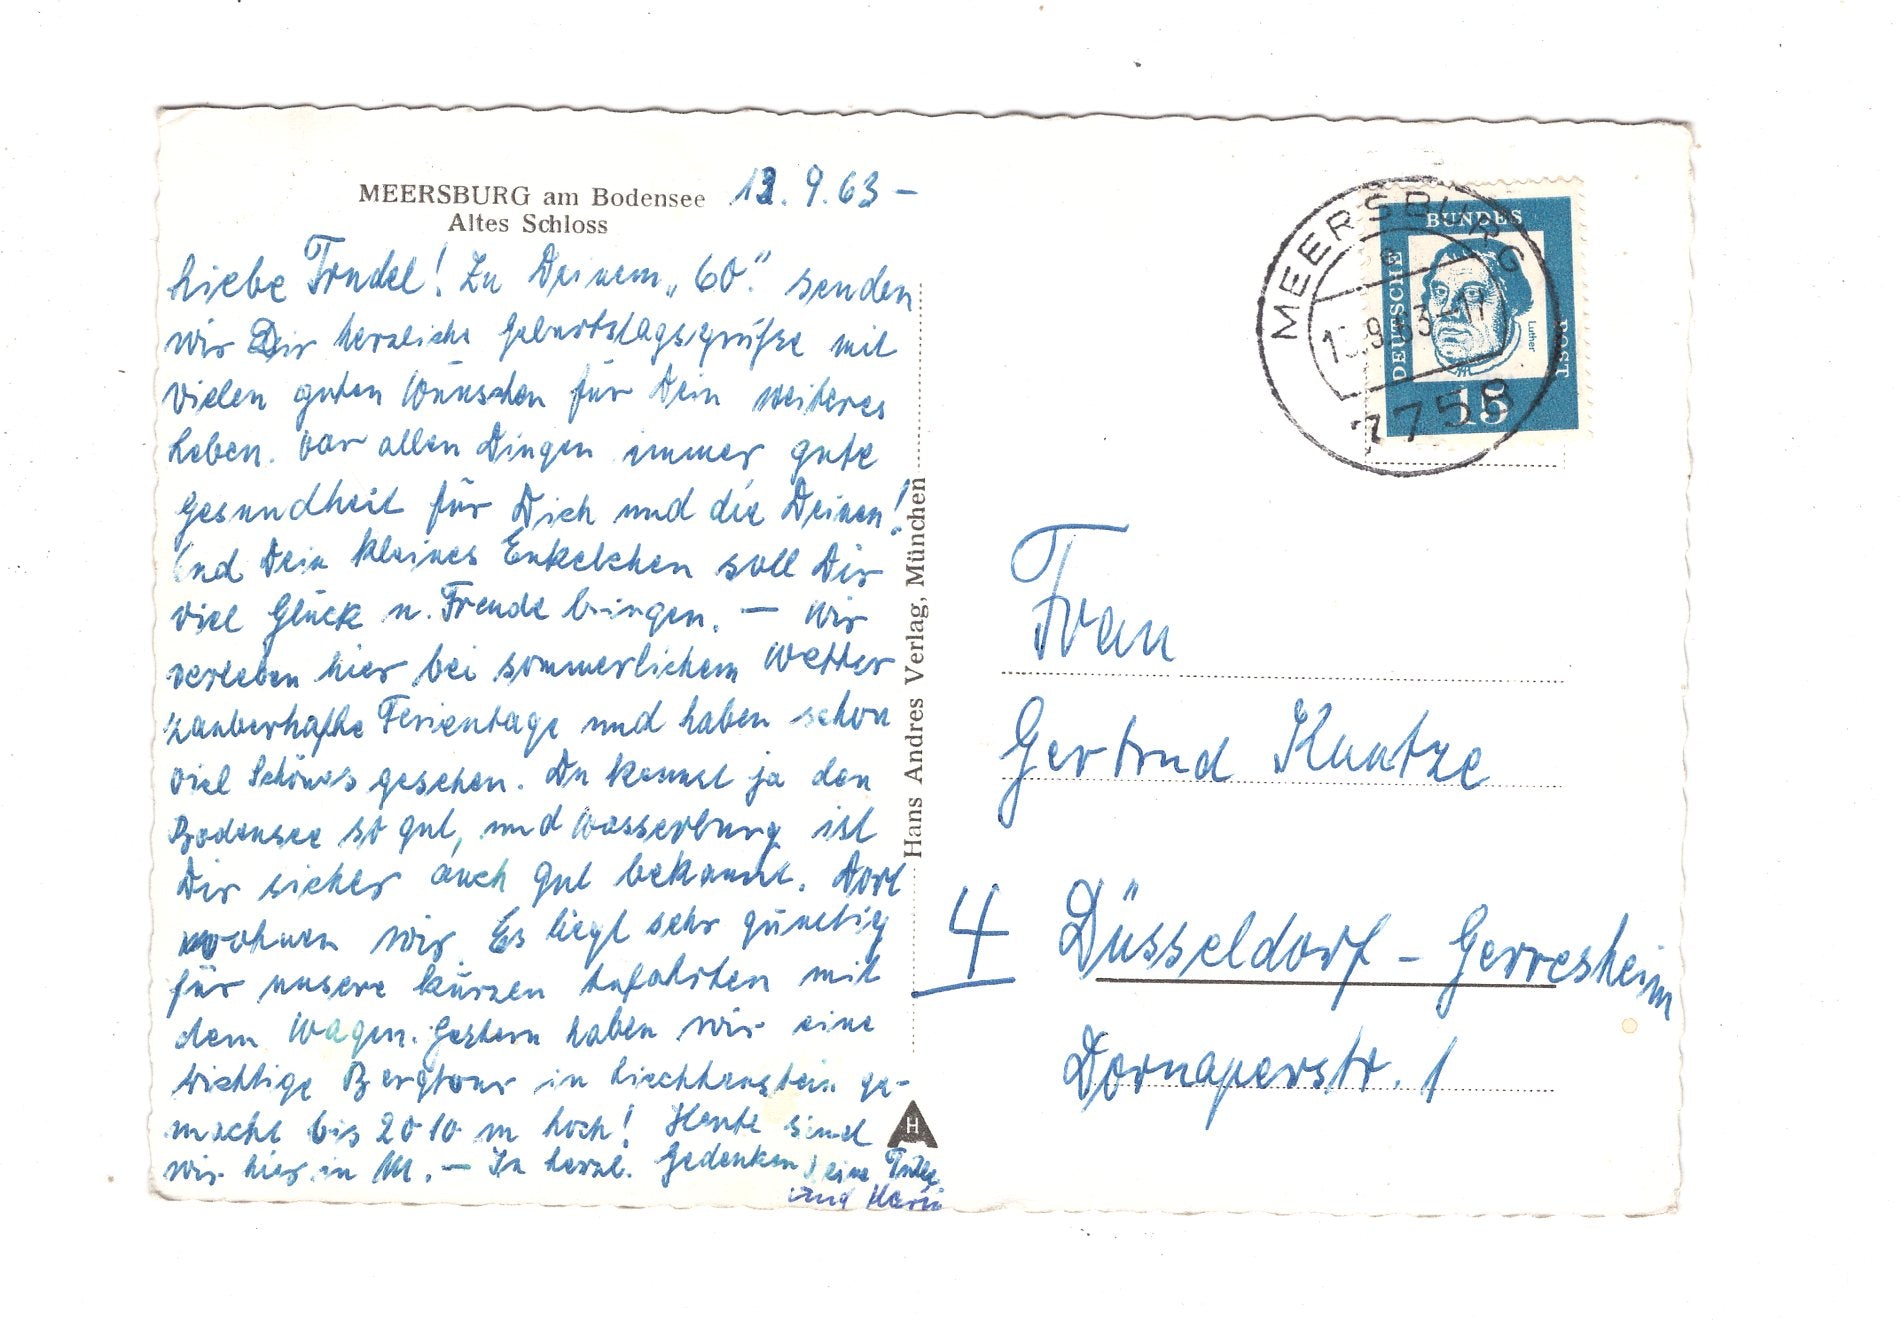 MEERSBURG am Bodensee
Altes Schloss
13. 9. 63 –
Liebe Trudel! Zu Deinem „60." senden
wir Dir herzliche Geburtstagsgrüße mit
vielen guten Wünschen für Dein weiteres
Leben. Vor allen Dingen immer gute
Gesundheit für Dich und die Deinen!
Und Dein kleines Enkelchen soll Dir
viel Glück u. Freude bringen. — Wir
verleben hier bei sommerlichem Wetter
zauberhafte Ferientage und haben schon
viel Schönes gesehen. Du kennst ja den
Bodensee so gut, und Wasserburg ist
Dir sicher auch gut bekannt. Dort
wohnen wir. Es liegt sehr günstig
für unsere kurzen Anfahrten mit
dem Wagen. Gestern haben wir eine
richtige Bergtour in Liechtenstein ge-
macht bis 2010 m hoch! Heute sind
wir hier in M. — In herzl. Gedenken
und
Hans Andres Verlag, München
H
MEERSBURG
.9.63-17
7758
DEUTSCHE
BUNDES
POST
Luther
15
Frau
Gertrud Kuntze
4 Düsseldorf - Gerresheim
Dornaperstr. 1